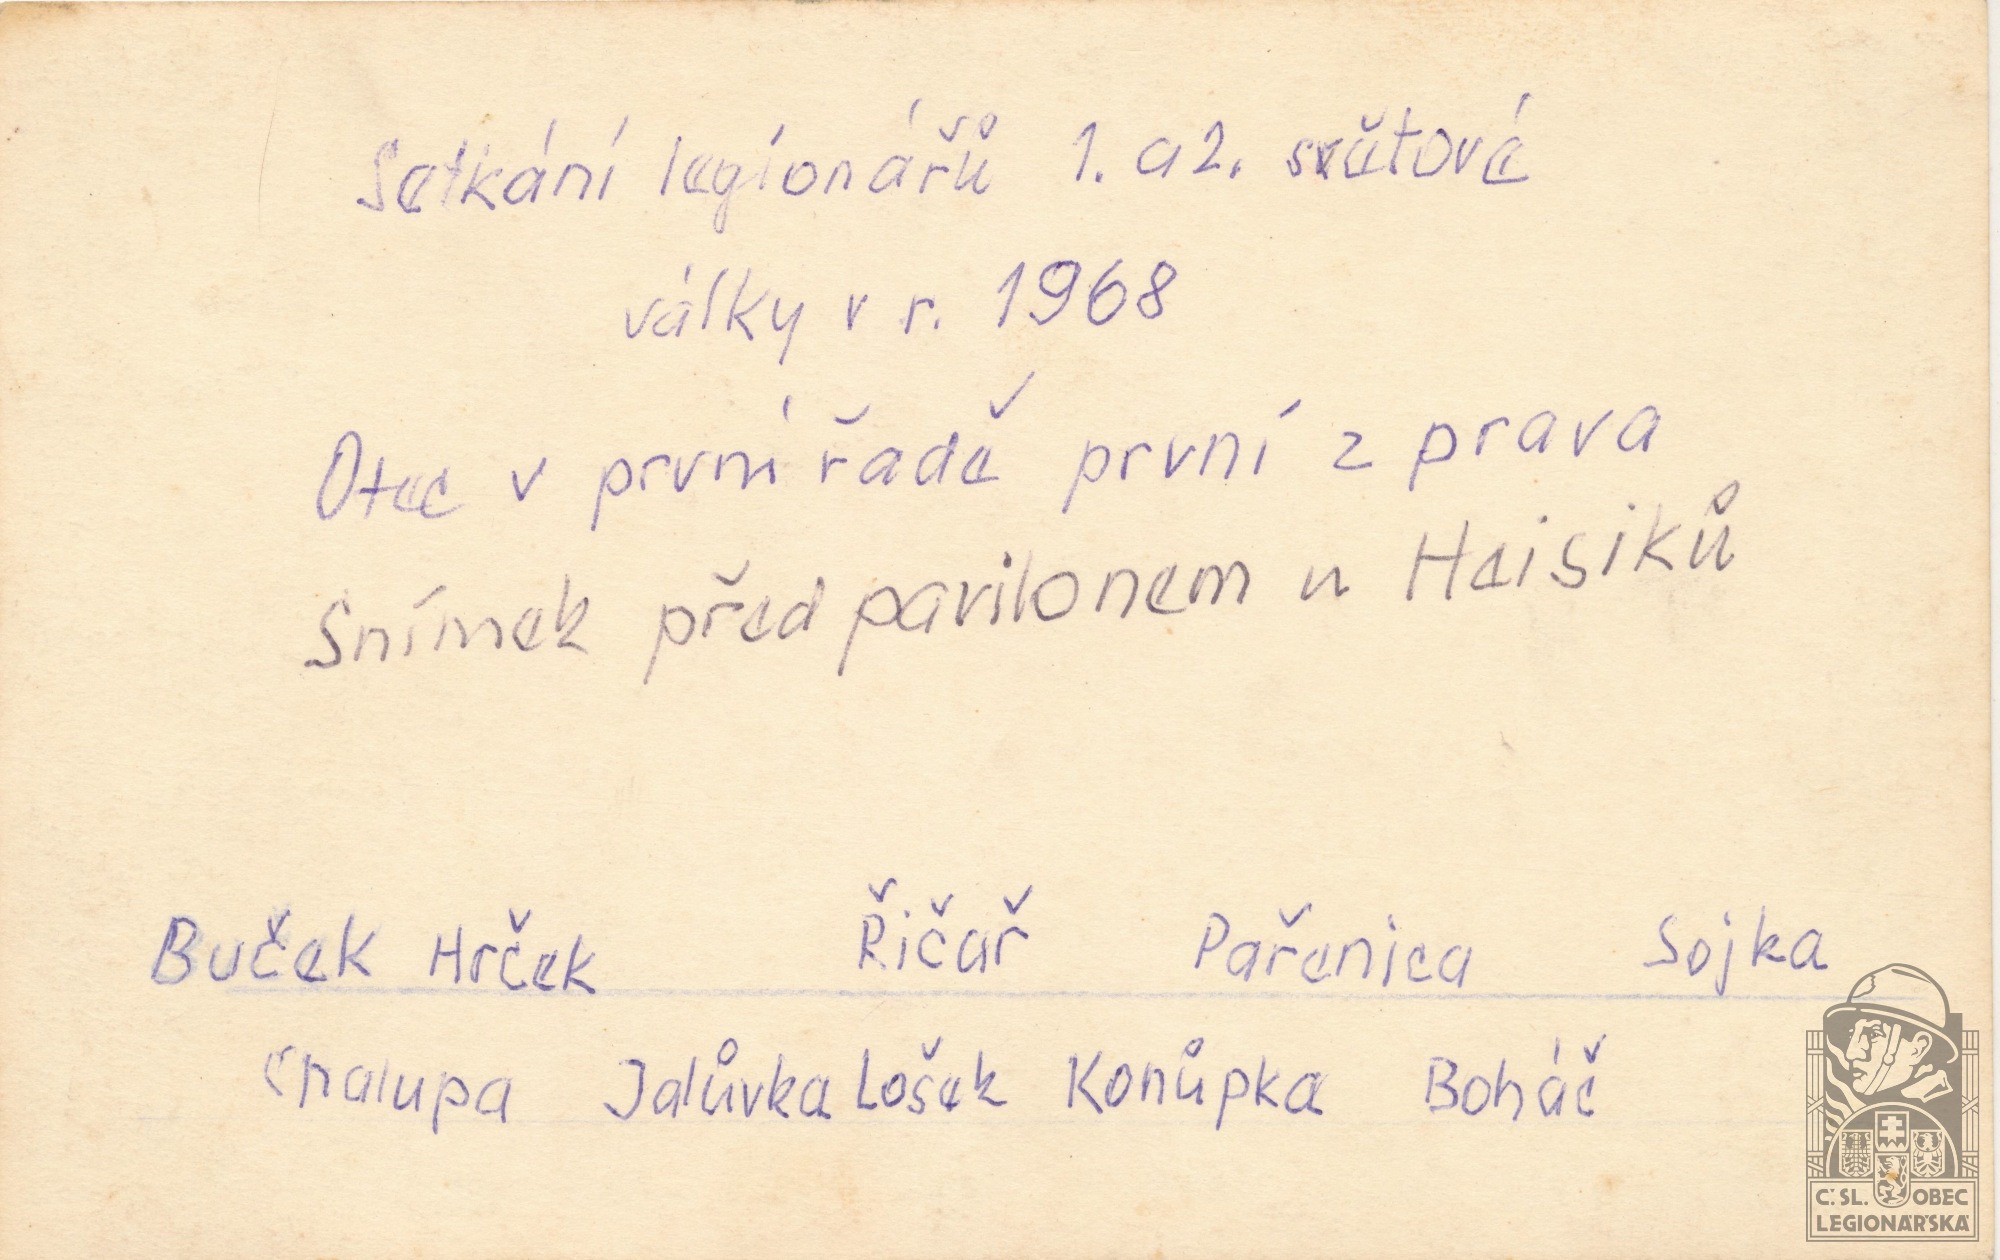 Setkání legionářů 1. a 2. světové
války v r. 1968
Otec v první řadě první z prava
Snímek před pavilonem u Heisiků
Buček Hrček Řičař Pařenica Sojka
Chalupa Jalůvka Lošek Konůpka Boháč
Č. SL. OBEC
LEGIONÁŘSKÁ